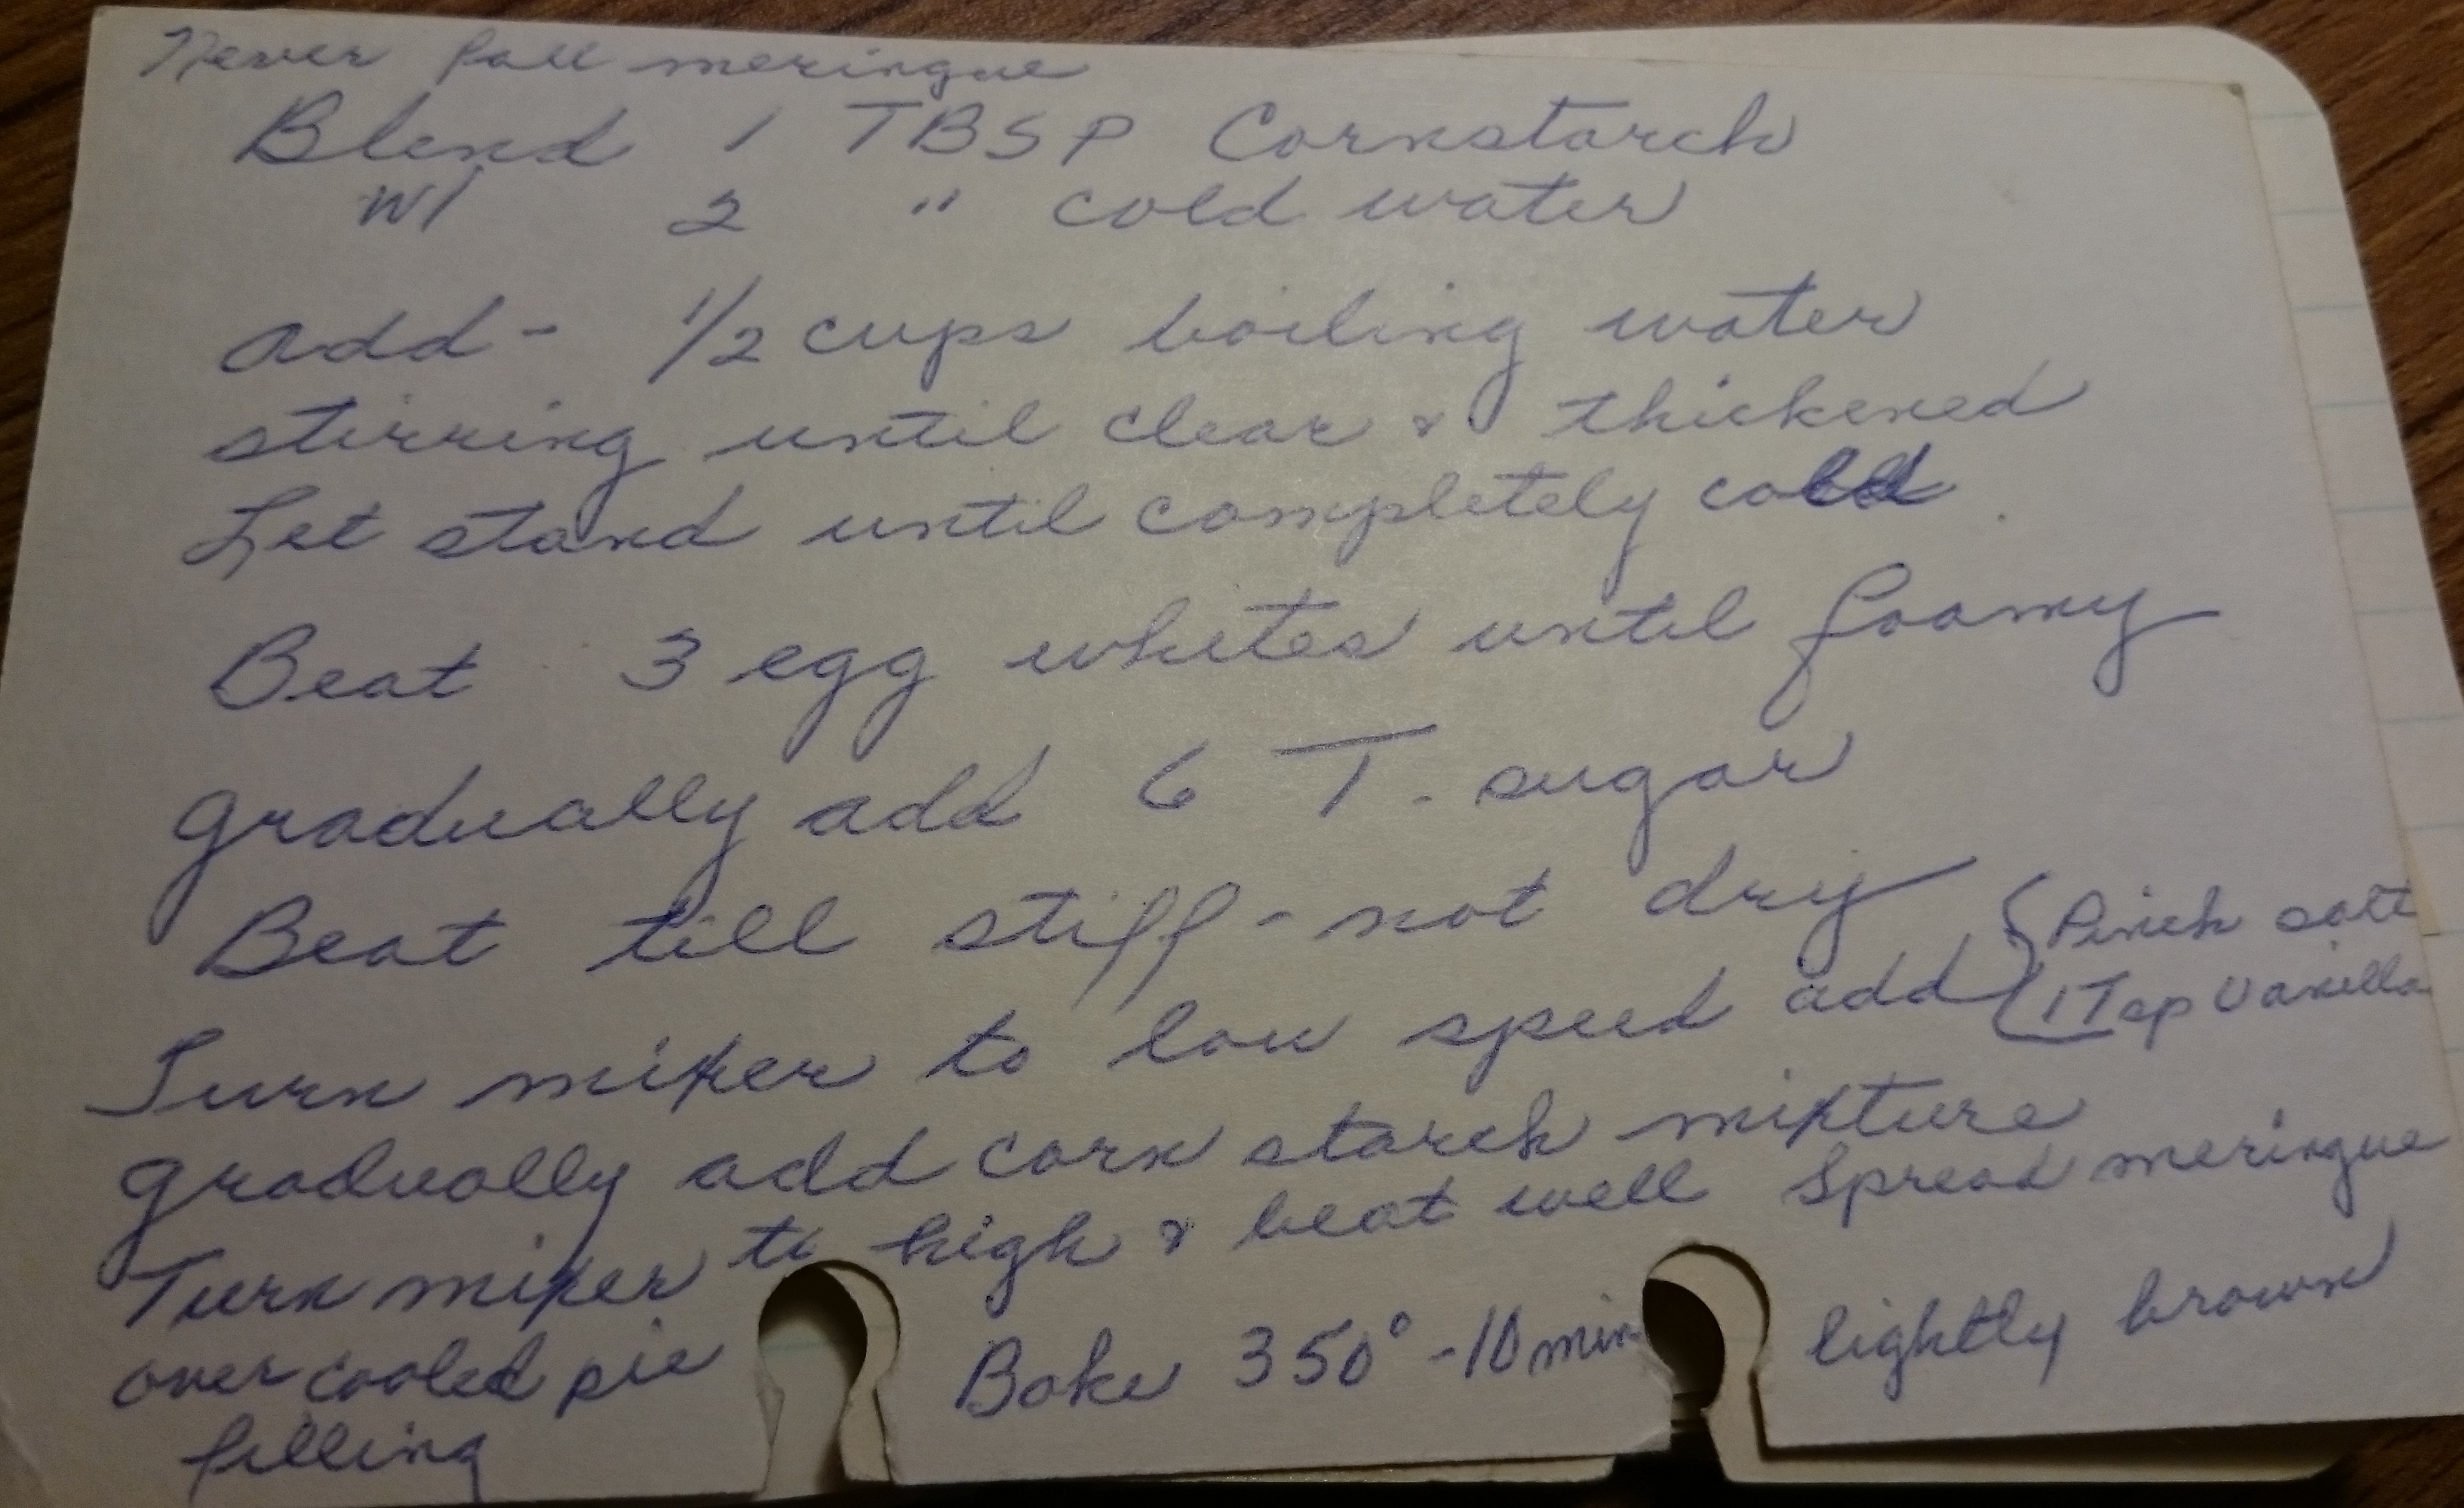 Never fall meringue
Blend 1 TBSP Cornstarch
w/ 2 " cold water
add - 1/2 cups boiling water
stirring until clear & thickened
Let stand until completely cold.
Beat 3 egg whites until foamy
gradually add 6 T. sugar
Beat till stiff - not dry
Turn mixer to low speed add { Pinch salt
1 Tsp Vanilla
gradually add corn starch mixture
Turn mixer to high & beat well Spread meringue
over cooled pie filling
Bake 350° - 10 min lightly brown